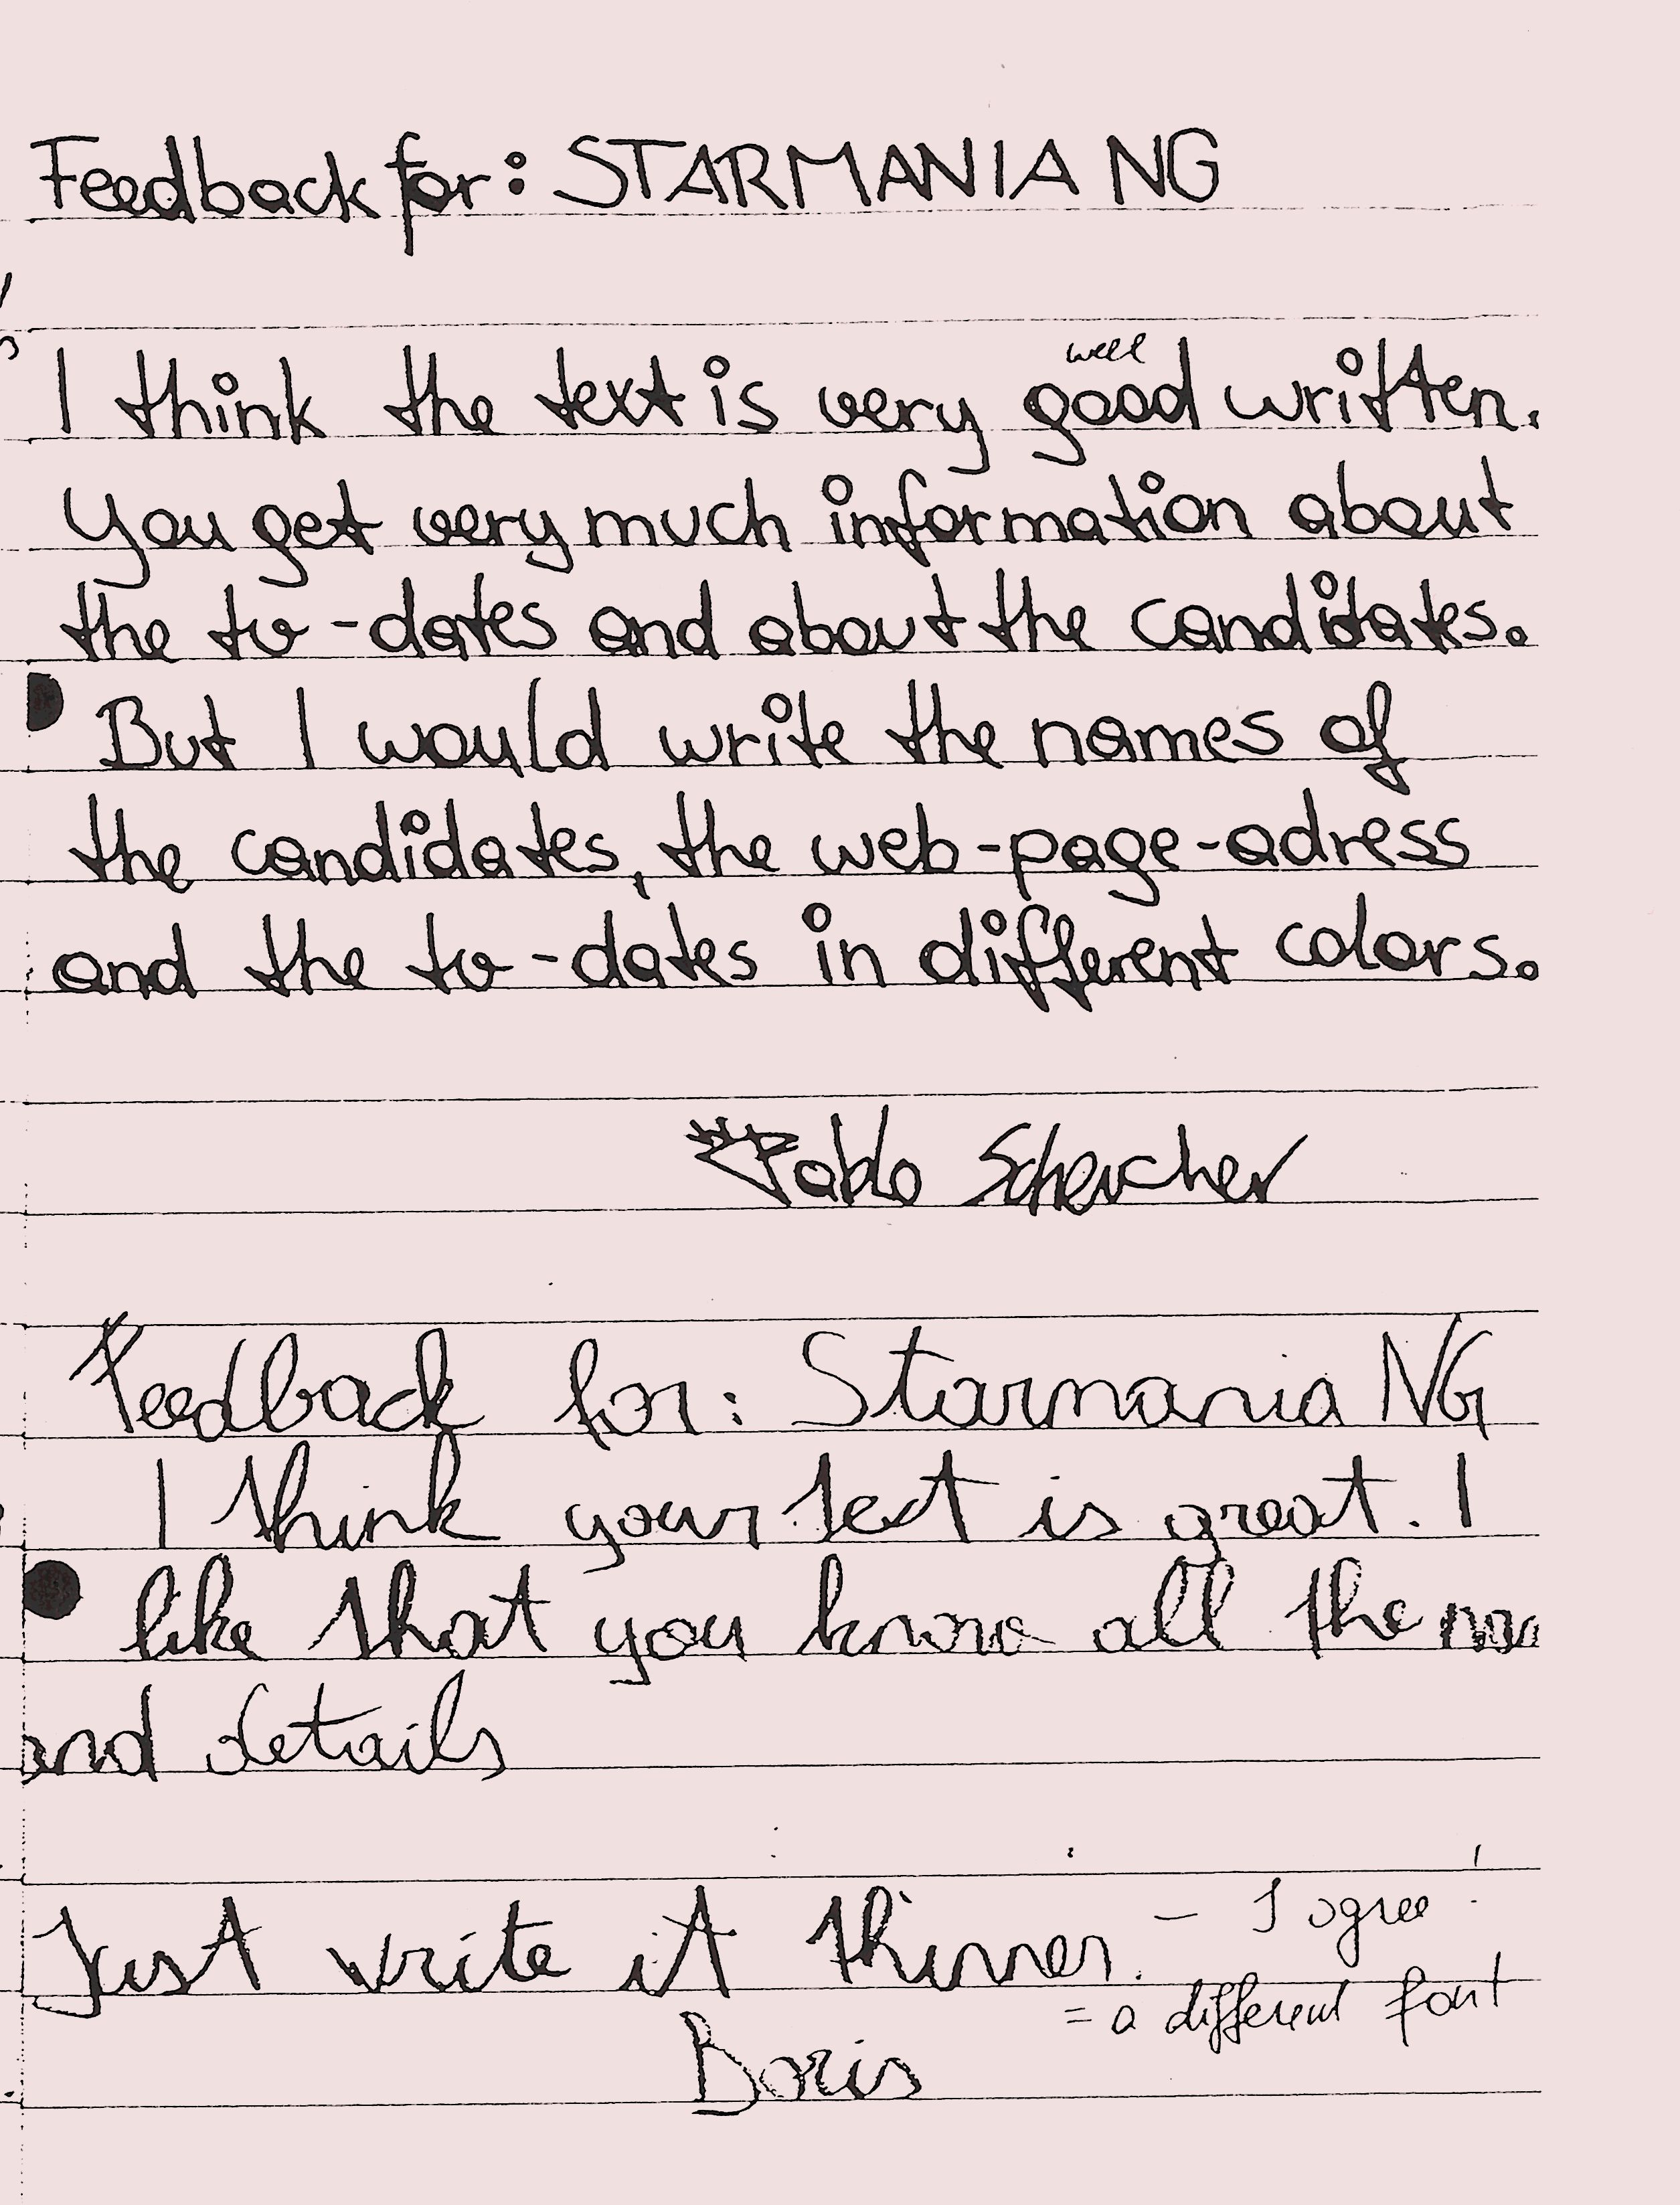 Feedback for: STARMANIA NG
well
I think the text is very good written.
You get very much information about
the tv-dates and about the candidates.
But I would write the names of
the candidates, the web-page-adress
and the tv-dates in different colors.
Pablo
Feedback for: Starmania NG
I think your text is great. I
like that you know all the
and details
Just write it thinner. - I agree!
= a different font
Boris